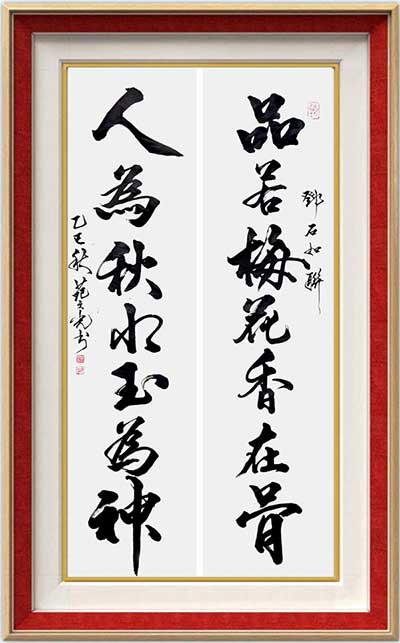 鄧石如聯
品若梅花香在骨
人為秋水玉為神
乙巳秋